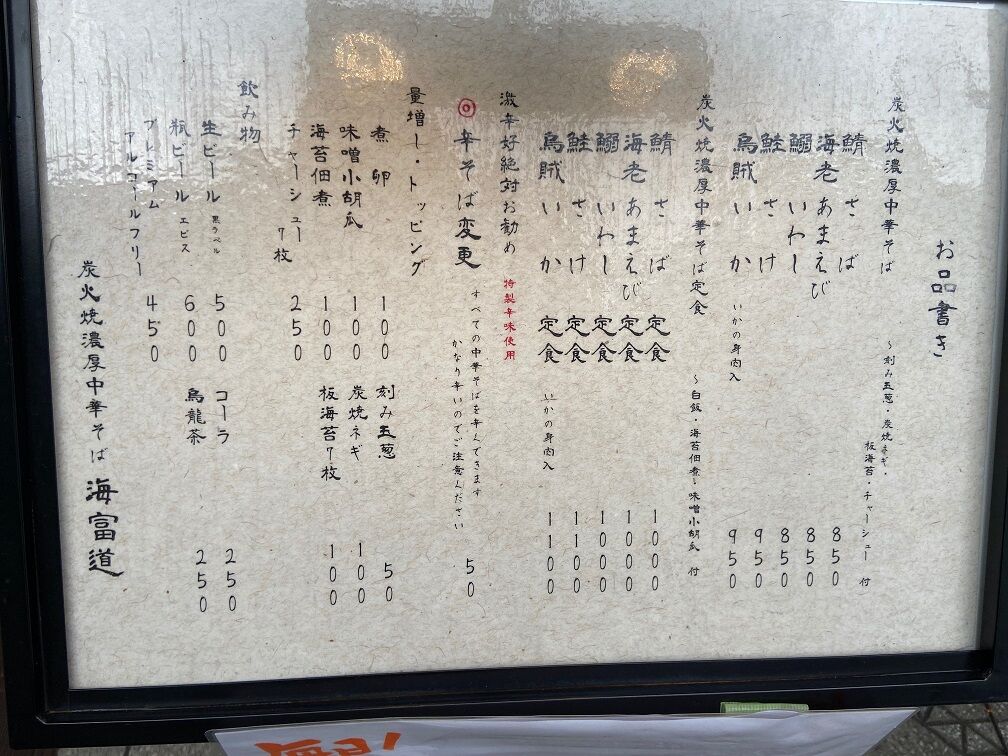 お品書き
炭火焼濃厚中華そば
～刻み玉葱・炭焼ネギ・
板海苔・チャーシュー 付
鯖 さば 850
海老 あまえび 850
鰯 いわし 850
鮭 さけ 950
烏賊 いか いかの身肉入 950
炭火焼濃厚中華そば定食 ～白飯・海苔佃煮・味噌小胡瓜 付
鯖 さば 定食 1000
海老 あまえび 定食 1000
鰯 いわし 定食 1000
鮭 さけ 定食 1100
烏賊 いか 定食 いかの身肉入 1100
激辛好絶対お勧め 特製辛味使用
◎ 辛そば変更 すべての中華そばを辛くできます
かなり辛いのでご注意ください 50
量増し・トッピング
煮卵 100 刻み玉葱 50
味噌小胡瓜 100 炭焼ネギ 100
海苔佃煮 100 板海苔7枚 100
チャーシュー7枚 250
飲み物
生ビール 黒ラベル 500 コーラ 250
瓶ビール エビス 600 烏龍茶 250
プレミアム
アルコールフリー 450
炭火焼濃厚中華そば 海富道